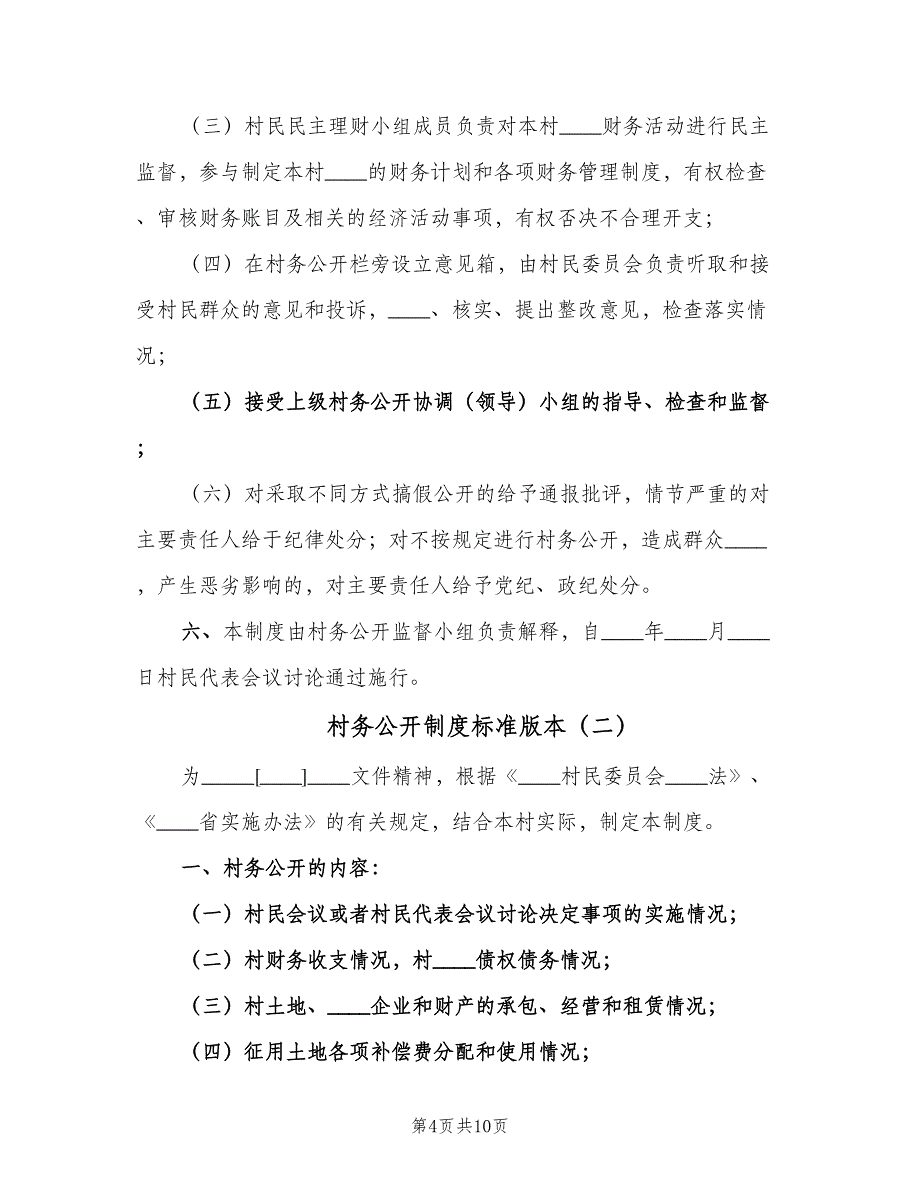 （三）村民民主理财小组成员负责对本村____财务活动进行民主
监督，参与制定本村____的财务计划和各项财务管理制度，有权检查
、审核财务账目及相关的经济活动事项，有权否决不合理开支；
（四）在村务公开栏旁设立意见箱，由村民委员会负责听取和接
受村民群众的意见和投诉，____、核实、提出整改意见，检查落实情
况；
（五）接受上级村务公开协调（领导）小组的指导、检查和监督
；
（六）对采取不同方式搞假公开的给予通报批评，情节严重的对
主要责任人给于纪律处分；对不按规定进行村务公开，造成群众____
，产生恶劣影响的，对主要责任人给予党纪、政纪处分。
六、本制度由村务公开监督小组负责解释，自____年____月____
日村民代表会议讨论通过施行。
村务公开制度标准版本（二）
为_____[____]____文件精神，根据《____村民委员会____法》、
《____省实施办法》的有关规定，结合本村实际，制定本制度。
一、村务公开的内容：
（一）村民会议或者村民代表会议讨论决定事项的实施情况；
（二）村财务收支情况，村____债权债务情况；
（三）村土地、____企业和财产的承包、经营和租赁情况；
（四）征用土地各项补偿费分配和使用情况；
第4页共10页